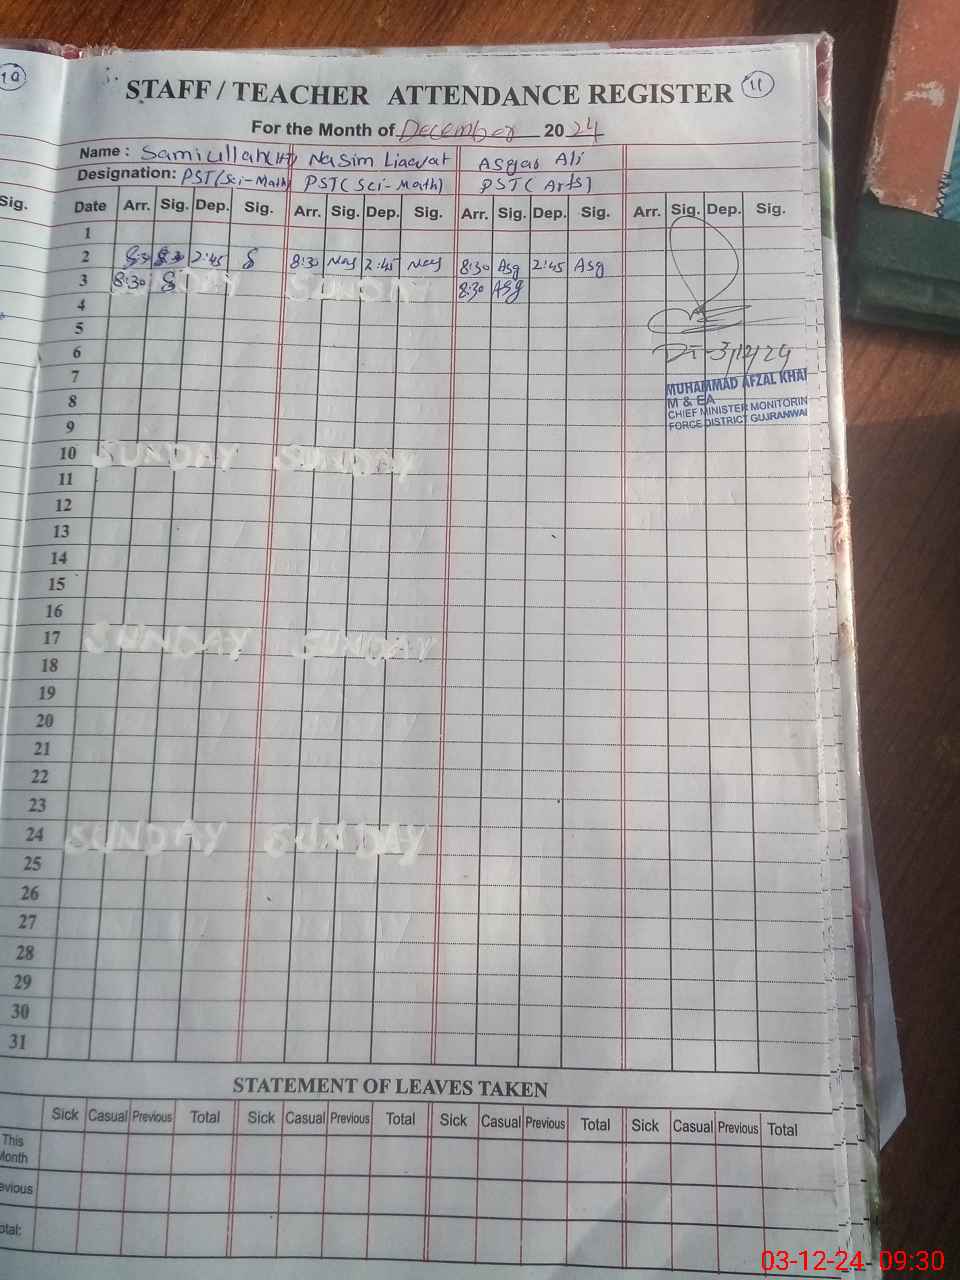 10
STAFF / TEACHER ATTENDANCE REGISTER 11
For the Month of December 2024
Name : Samiullah(HT) Nasim Liaqvat Asgar Ali
Designation: PST(Sci-Math) PST(Sci-Math) PST(Arts)
Sig. Date Arr. Sig. Dep. Sig. Arr. Sig. Dep. Sig. Arr. Sig. Dep. Sig. Arr. Sig. Dep. Sig.
1
2 8:30 2:45 8:30 Nas 2:45 Nas 8:30 Asg 2:45 Asg
3 8:30 SUNDAY 8:30 Asg
4
5
6 DT-3/12/24
7 MUHAMMAD AFZAL KHAN
8 M & EA
CHIEF MINISTER MONITORIN
9 FORCE DISTRICT GUJRANWAL
10 SUNDAY SUNDAY
11
12
13
14
15
16
17 SUNDAY SUNDAY
18
19
20
21
22
23
24 SUNDAY SUNDAY
25
26
27
28
29
30
31
STATEMENT OF LEAVES TAKEN
Sick Casual Previous Total Sick Casual Previous Total Sick Casual Previous Total Sick Casual Previous Total
This
Month
evious
otal:
03-12-24 09:30